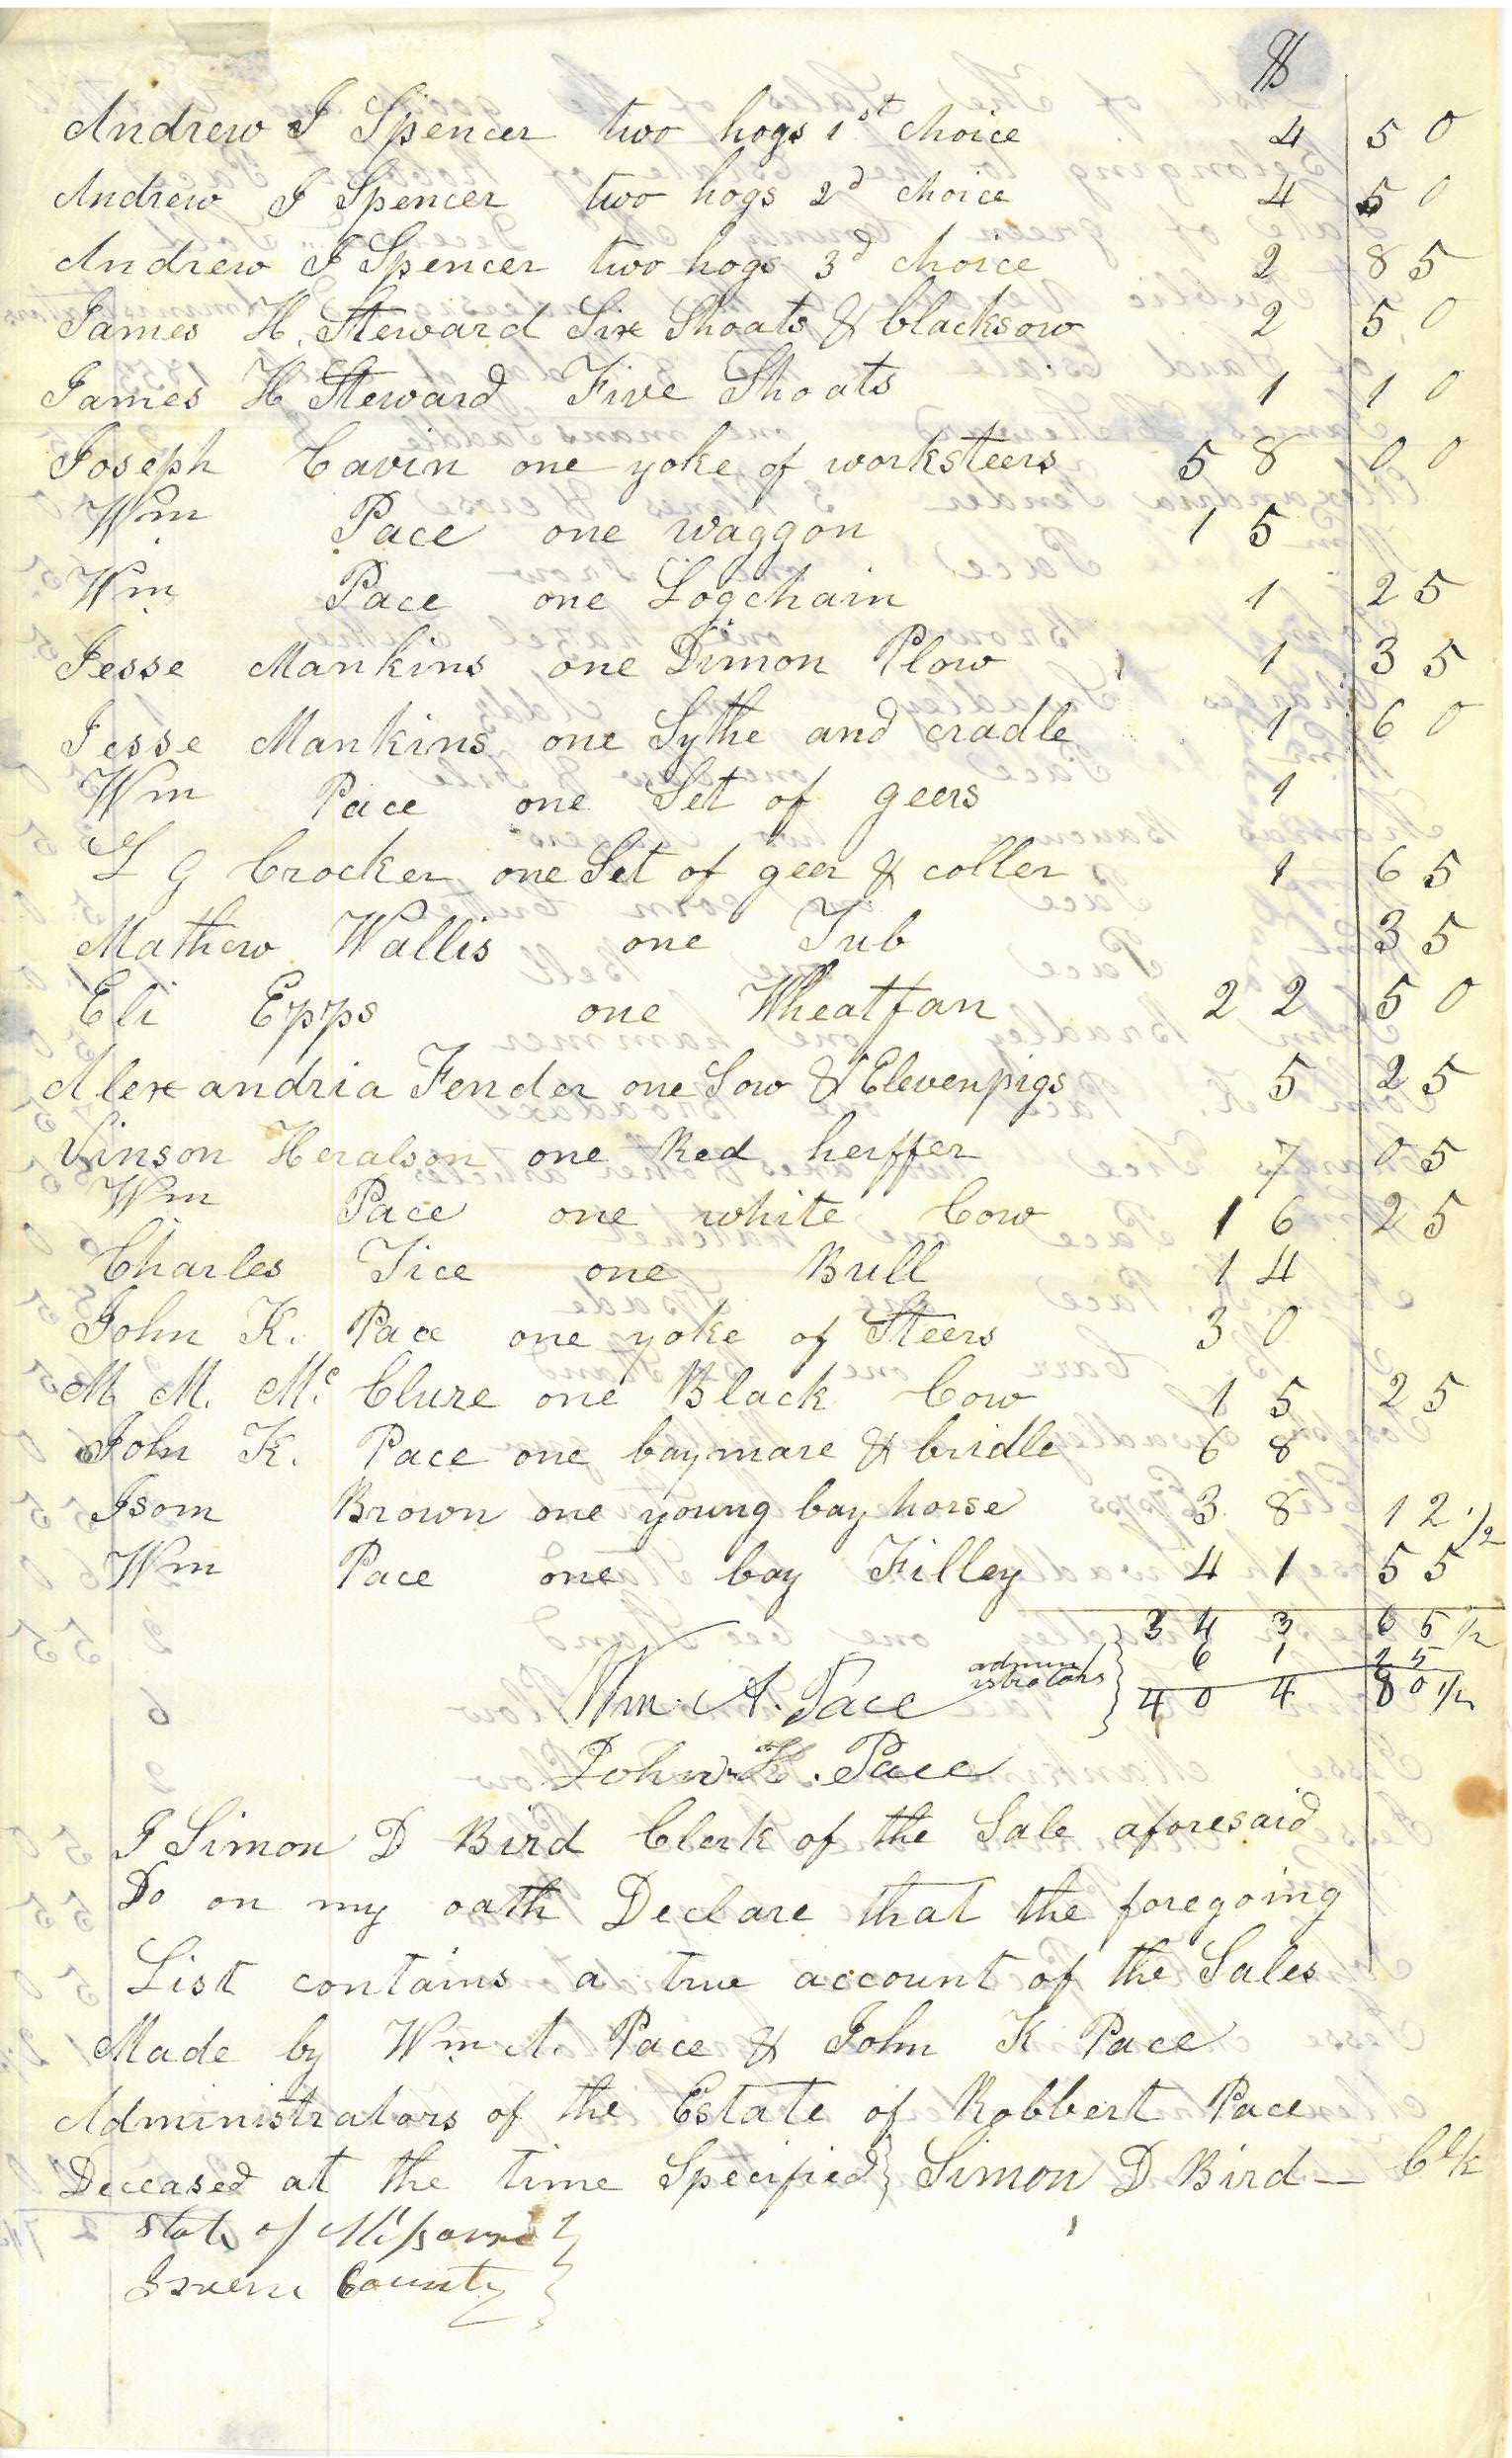 $
Andrew J Spencer two hogs 1st choice 4 50
Andrew J Spencer two hogs 2d choice 4 50
Andrew J Spencer two hogs 3d choice 2 85
James H. Steward Six Shoats & blacksow 2 50
James H Steward Five Shoats 1 10
Joseph Cavin one yoke of worksteers 58 00
Wm Pace one waggon 15
Wm Pace one Logchain 1 25
Jesse Mankins one Dimon Plow 1 35
Jesse Mankins one Sythe and cradle 1 60
Wm Pace one Set of geers 1
L G Crocker one Set of geer & coller 1 65
Mathew Wallis one Tub 35
Eli Epps one Wheatfan 22 50
Alexandria Fender one Sow & Elevenpigs 5 25
Vinson Heralson one Red heiffer 7 05
Wm Pace one white Cow 16 25
Charles Tice one Bull 14
John K. Pace one yoke of Steers 30
M. M. Mc Clure one Black Cow 15 25
John K. Pace one baymare & bridle 68
Isom Brown one young bay horse 38 12 1/2
Wm Pace one bay Filley 41 55
343 65 1/2
61 15
Wm. A. Pace administrators 404 80 1/2
John K. Pace
I Simon D Bird Clerk of the Sale aforesaid
Do on my oath Declare that the foregoing
List contains a true account of the Sales
Made by Wm. A. Pace & John K Pace
Administrators of the Estate of Robbert Pace
Deceased at the time Specified } Simon D Bird — Clk
State of Missouri }
Greene County }